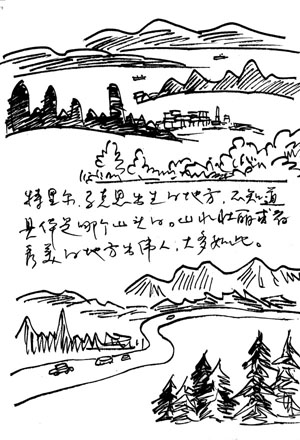 特里尔,马克思出生的地方,不知道
具体是哪个山头的。山水壮丽或者
秀美的地方出伟人,大多如此。